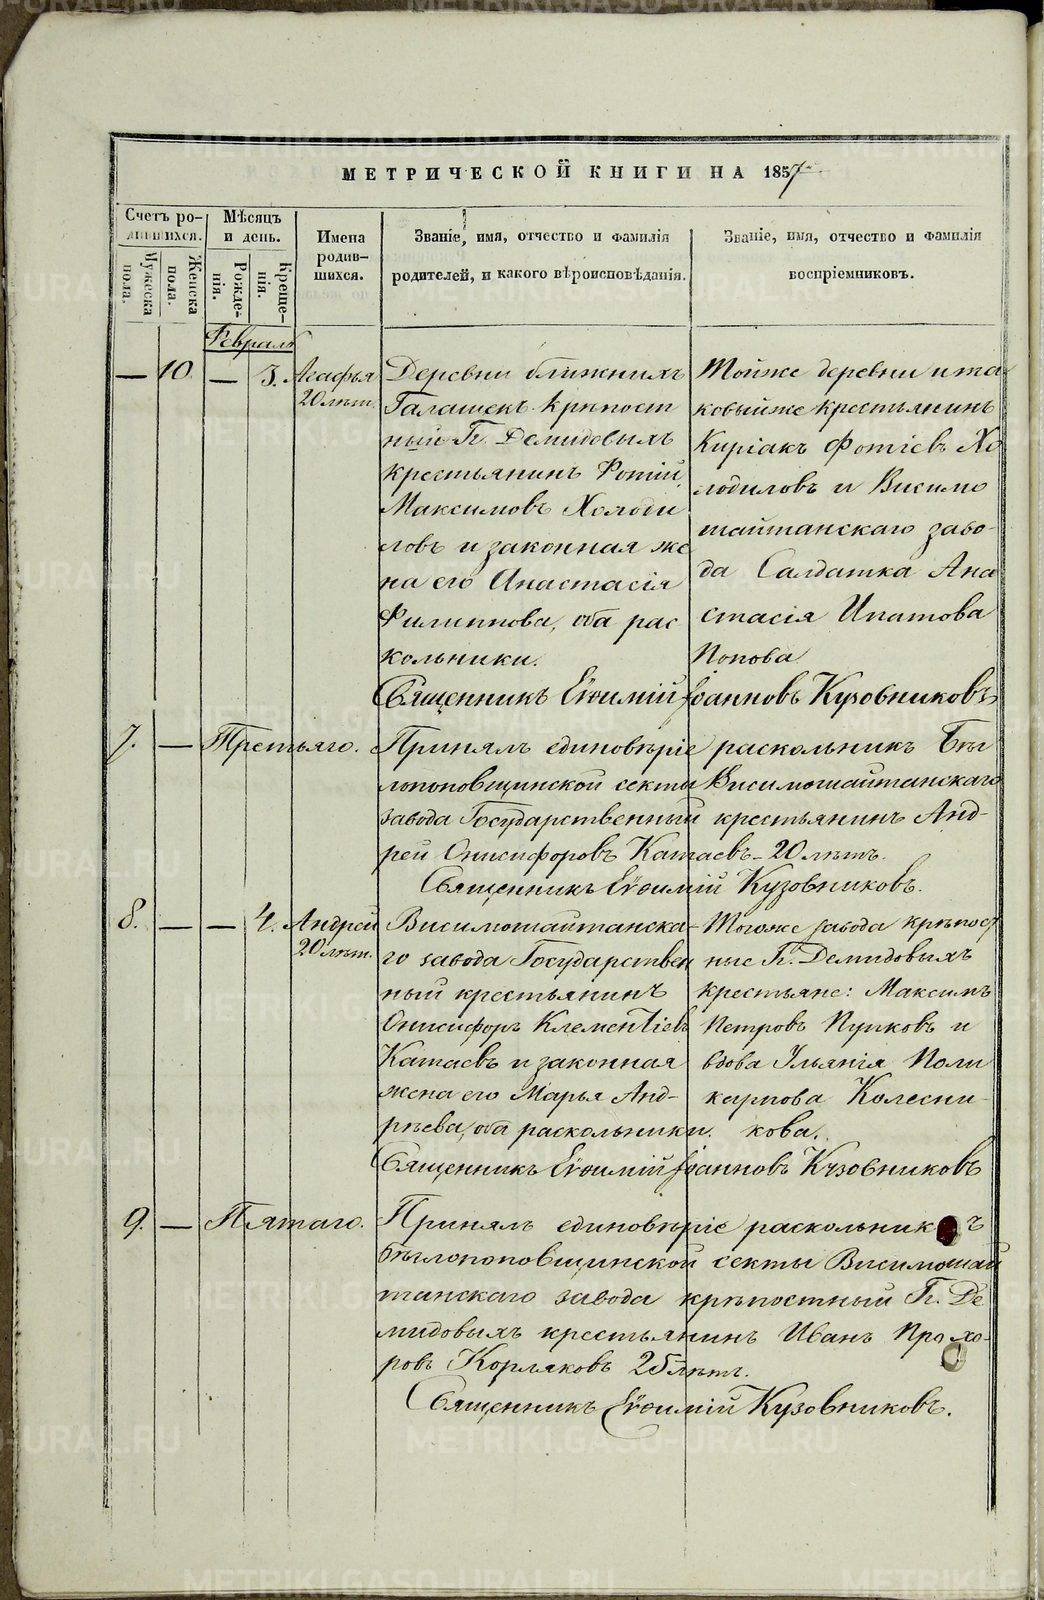 МЕТРИЧЕСКОЙ КНИГИ НА 1857
Счетъ ро-
дившихся.
Мѣсяцъ
и день.
Имена
родив-
шихся.
Званіе, имя, отчество и фамилія
родителей, и какого вѣроисповѣданія.
Званіе, имя, отчество и фамилія
воспріемниковъ.
Мужеска
пола.
Женска
пола.
Рожде-
нія.
Креще-
нія.
Февраль
— 10. — 3. Агафья
20 лѣт.
Деревни ближнихъ
Галашекъ крѣпост
ный Гг. Демидовыхъ
крестьянинъ Фотій
Максимовъ Холоди
ловъ и законная же
на его Анастасія
Филиппова, оба рас
кольники.
Тойже деревни и та
ковыйже крестьянинъ
Киріакъ Фотіевъ Хо
лодиловъ и Висимо
шайтанскаго заво-
да Салдатка Ана
стасія Ипатова
Попова
Священникъ Евѳимій Іоанновъ Кузовниковъ
7. — Третьяго. Принялъ единовѣріе раскольникъ Бѣг
лопоповщинской секты Висимошайтанскаго
завода Государственный крестьянинъ Анд-
рей Онисифоровъ Катаевъ - 20 лѣтъ.
Священникъ Евѳимій Кузовниковъ.
8. — — 4. Андрей
20 лѣт.
Висимошайтанска-
го завода Государствен
ный крестьянинъ
Онисифоръ Клементіевъ
Катаевъ и законная
жена его Марья Анд-
рѣева, оба раскольники.
Тогоже завода крѣпост
ные Гг. Демидовыхъ
крестьяне: Максимъ
Петровъ Пупковъ и
вдова Ульянія Поли
карпова Колесни-
кова.
Священникъ Евѳимій Іоанновъ Кузовниковъ
9. — Пятаго. Принялъ единовѣріе раскольникъ
бѣглопоповщинской секты Висимошай
танскаго завода крѣпостный Гг. Де
мидовыхъ крестьянинъ Иванъ Прохо-
ровъ Корляковъ 25 лѣтъ.
Священникъ Евѳимій Кузовниковъ.
METRIKI.GASO-URAL.RU